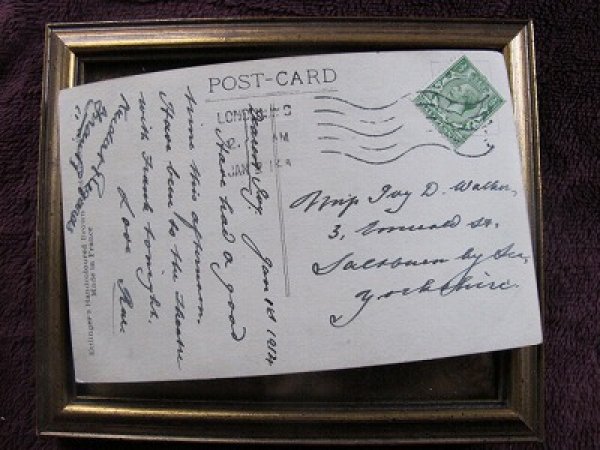 POST-CARD
LONDON
JAN
Dearest Ivy. Jan 1st 1914
Have had a good
time this afternoon.
Have been to the Theatre
with Frank tonight.
Love
Miss Ivy D. Walker,
3, Emerald St.
Saltburn by Sea,
Yorkshire.
Ettlinger's Handcoloured Brown
Made in France